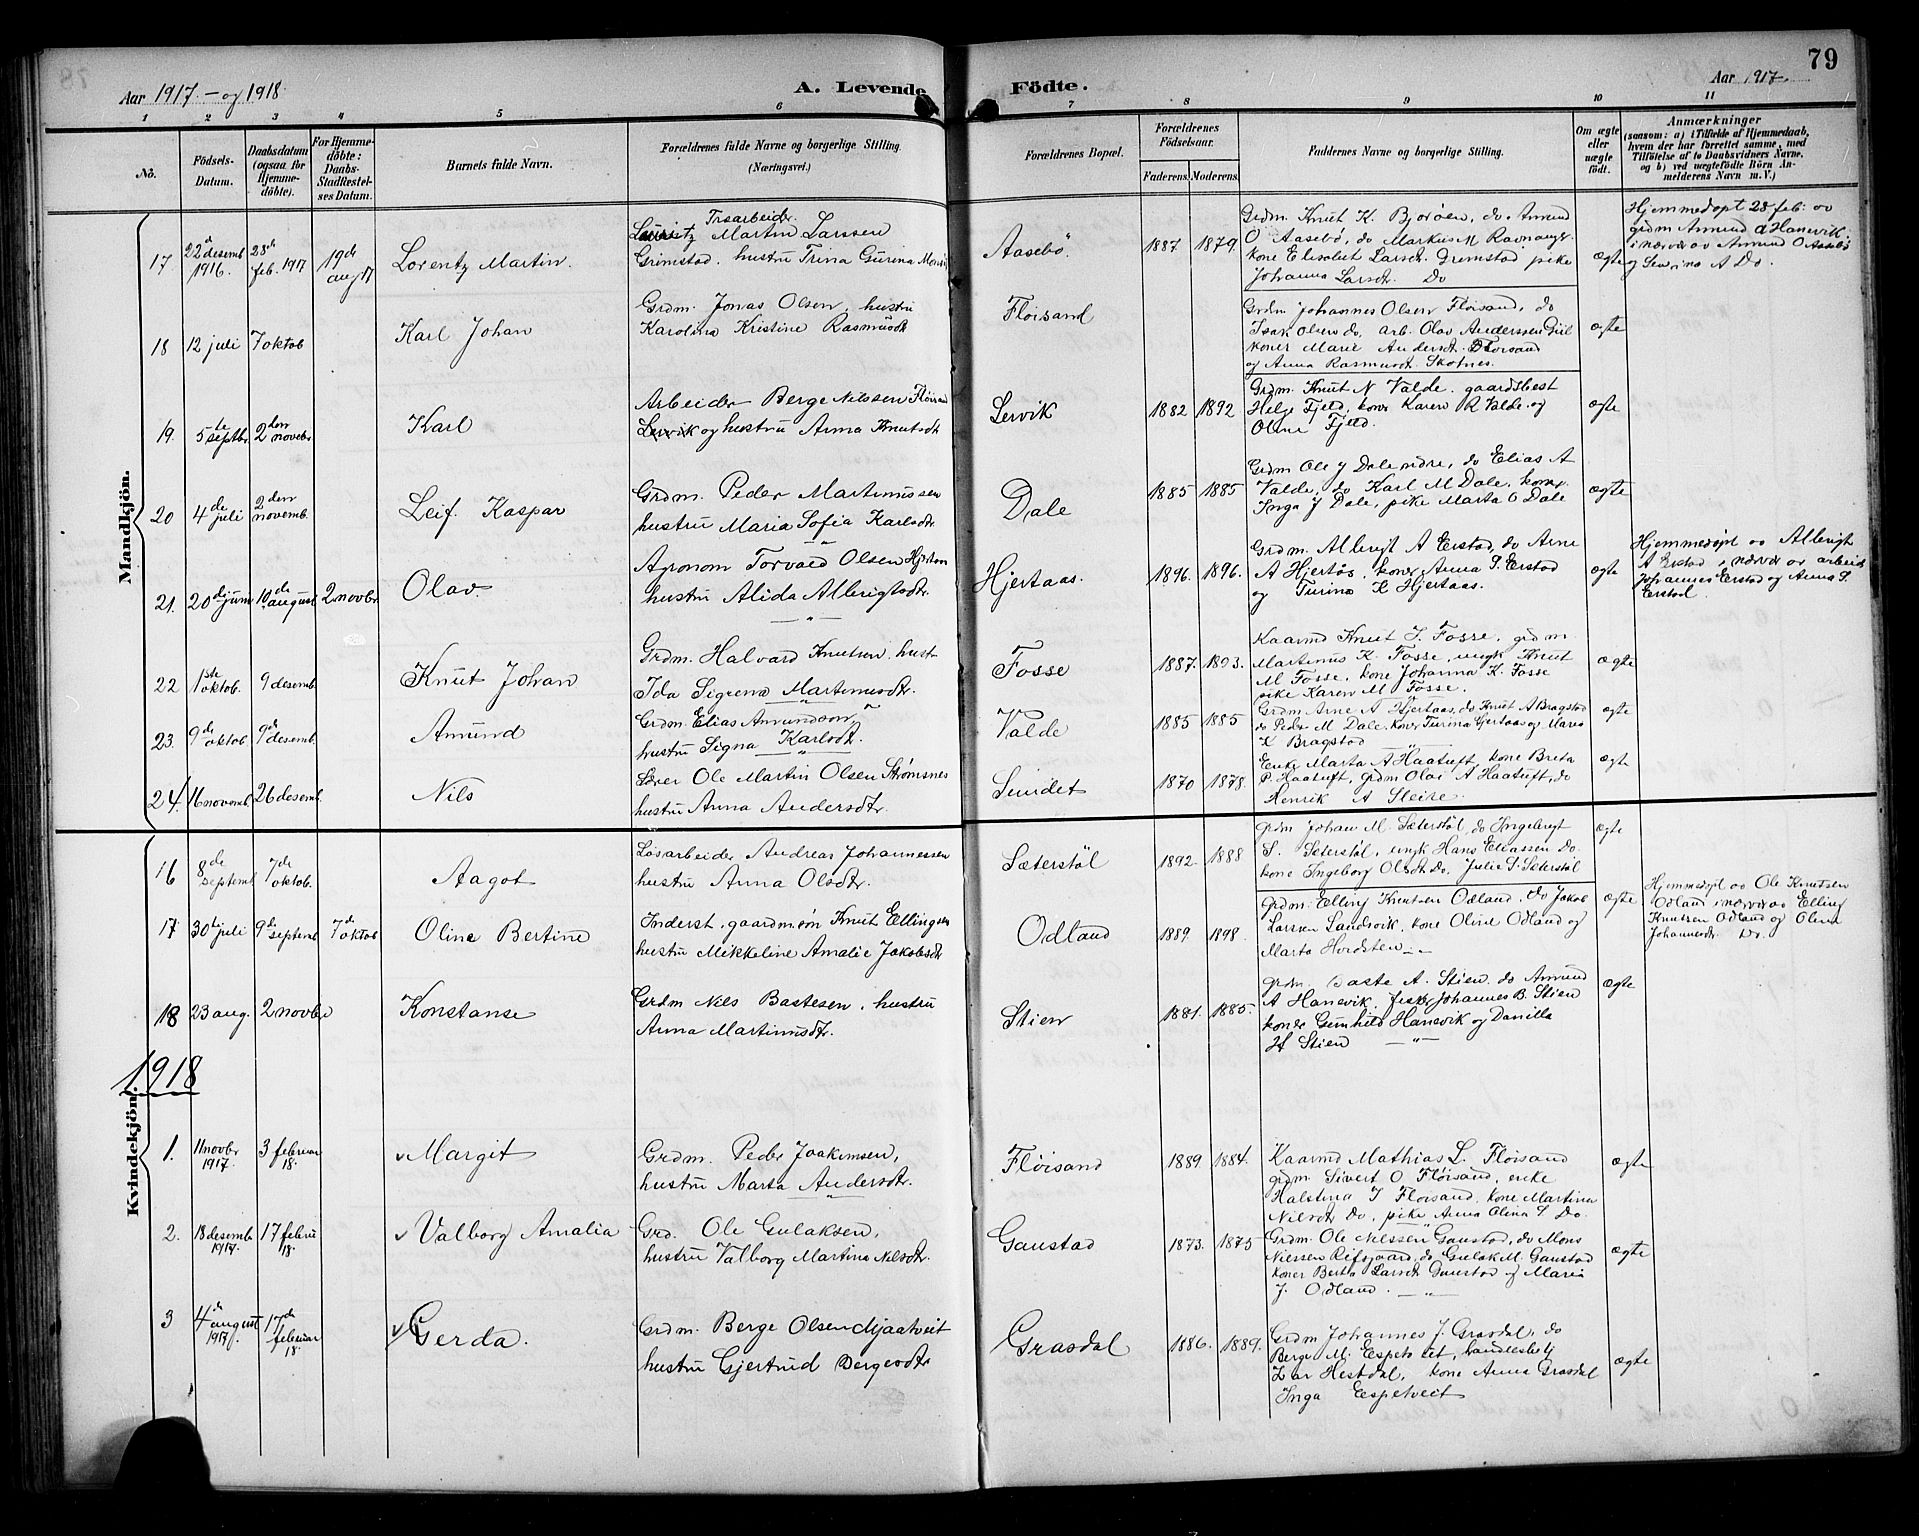 79
Aar 1917 - og 1918
A. Levende Födte.
Aar 1917.
1 2 3 4 5 6 7 8 9 10 11
No.
Födsels-Datum.
Daabsdatum (ogsaa for Hjemme-döbte).
For Hjemme-döbte: Daabs-Stadfæstel-ses Datum.
Barnets fulde Navn.
Forældrenes fulde Navne og borgerlige Stilling. (Næringsvei).
Forældrenes Bopæl.
Forældrenes Födselsaar.
Faderens. Moderens.
Faddernes Navne og borgerlige Stilling.
Om ægte eller uægte födt.
Anmærkninger
(saasom: a) i Tilfælde af Hjemmedaab, hvem der har forrettet samme, med Tilföielse af to Daabsvidners Navne, og b) ved uægtefödte Börn Anmelderens Navn m. V.)
Mandkjön.
17 22de desemb 1916. 28de feb. 1917 19de aug 17 Lorentz Martin.
Træarbeider.
Lauritz Martin Larssen
Grimstad, hustru Trina Gurina Monsdt
Aasebö 1887 1879
Grdm. Knut K. Bjoröen, do Amund
O Aasebö, do Markus M Ravnanger
kone Elisabet Larsdt. Grimstad pike
Johanna Larsdt. Do
ægte
Hjemmedöpt 28 feb: av
grdm Amund A Hanevik
i nærvær av Amund O Aasebö
og Sevrine A Do.
18 12 juli 7 oktob Karl Johan
Grdm. Jonas Olsen, hustru
Karolina Kristine Rasmusdt
Flöisand
Grdm Johannes Olsen Flöisand, do
Isak Olsen do, arb. Olav Anderssen
koner Marie Andersdt. Flöisand
og Anna Rasmusdt. Skotnes.
ægte
19. 5te septbr 2den novebr Karl
Arbeider Berge Nilssen Flöisand
Lervik og hustru Anna Knutsdt
Lervik 1882 1892
Grdm. Knut N Valde. gaardsbest
Helge Fjeld, koner Karen R Valde og
Oline Fjeld.
ægte
20 4de juli 2den novemb. Leif. Kaspar
Grdm. Peder Martinussen
hustru Maria Sofia Karlsdt
Dale 1885 1885
Grdm Ole J Dale ndre, do Elias A
Valde, do Karl M Dale, koner
Inga J Dale, pike Marta O Dale
ægte
21. 20de juni 10de august 2 novbr Olav.
Agronom Torvald Olsen Hjertaas
hustru Alida Albrigtsdt
Hjertaas. 1896. 1896.
Grdm. Albrigt A Erstad, do Arne
A Hjertös, koner Anna S. Erstad
og Turina K Hjertaas.
ægte
Hjemmedöpt av Albrigt
A Erstad i nærvær av arbeid
Johannes Erstad og Anna S.
Erstad.
22 1ste oktob. 9 desemb. Knut Johan
Grdm. Halvard Knutsen, hust
Ida Sigrena Martinusdt.
Fosse 1887. 1893.
Kaarmd Knut J. Fosse, grdm.
Martinus K. Fosse, ungk Knut
M Fosse, kone Johanna K. Fosse
pike Karen M Fosse.
ægte
23. 9de oktob 9de desemb. Amund
Grdm. Elias Amundsen,
hustru Signa Karlsdt.
Valde 1885 1885
Grdm Arne A Hjertaas, do Knut A Bragstad
do Peder M Dale. koner Turina Hjertaas og Maria
K Bragstad
ægte
24. 16 novemb. 26 desemb. Nils
Lærer Ole Martin Olsen Strömsnes
hustru Anna Andersdtr.
Smidet 1870 1878.
Enke Marta A Haatuft, kone Breta
P. Haatuft, grdm Olai A Haatuft, do
Henrik A Sleire.
ægte
Kvindekjön.
16 8de septemb 7de oktob. Aagot
Lösarbeider Andreas Johannessen
hustru Anna Olsdtr.
Sæterstöl 1892. 1888
Grdm Johan M. Sæterstöl, do Ingebrigt
S. Sæterstöl, ungk Hans Eliassen Do.
kone Ingeborg Olsdt Do, Julie S. Sæterstöl
ægte
17 30te juli 9de septemb 7de oktob Oline Bertine
Inderst, gaardm.sön Knut Ellingsen
hustru Mikkeline Amalie Jakobsdt
Odland 1889. 1898.
Grdm: Elling Knutsen Odland, do Jakob
Larsen Landsvik, kone Oline Odland og
Marta Hordsten
ægte
Hjemmedöpt av Ole Knutsen
Odland i nærvær av Elling
Knutsen Odland og Olina
Johannesdt. Do.
18 23 aug. 2 novbr Konstanse
Grdm Nils Bastesen, hustru
Anna Martinusdtr.
Stien 1881. 1885.
Grdm Baste A. Stien. do Amund
A Hanevik, fisker Johannes B. Stien
koner Gunhild Hanevik og Danilla
H Stien
ægte
1918
1. 11 novbr 1917. 3 februar 18. Margit
Grdm. Peder Joakimsen,
hustru Marta Andersdtr.
Flöisand 1889. 1884.
Kaarmd Mathias L. Flöisand
grdm Sivert O Flöisand, enke
Halstina J Flöisand, kone Martina
Nilsdt Do, pike Anna Olina S Do.
ægte
2. 18 desemb 1917. 17 februa 18. Valborg Amalia
Grd. Ole Gulaksen,
hustru Valborg Martina Nilsdt.
Gaustad 1873. 1875
Grdm. Ole Nilssen Gaustad, do Mons
Nilssen Refsgaard, do Gulak M. Gaustad
koner Berta Larsdt Gaustad og Maria
J. Odland.
ægte
3 4de august 1917. 17de februar 18. Gerda.
Grdm. Berge Olsen Mjaatveit
hustru Gjertrud Bergesdtr
Grasdal 1886. 1889.
Grdm Johannes J. Grasdal, do
Berge M. Espetveit, handlesbetj
Lar Hestdal, kone Anna Grasdal
Inga Espetveit
ægte